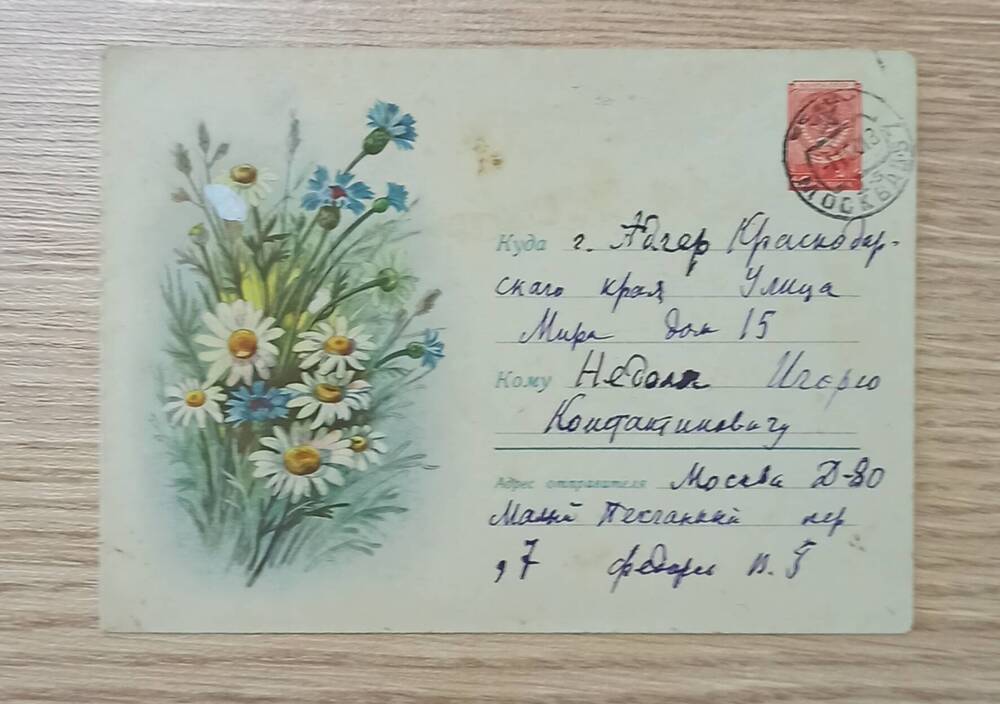 МОСКВА
Куда г. Адлер Краснодар-
скаго края Улица
Мира дом 15
Кому Недоля Игорю
Контантиновичу
Адрес отправителя Москва Д-80
Малый Песчаный пер
д 7